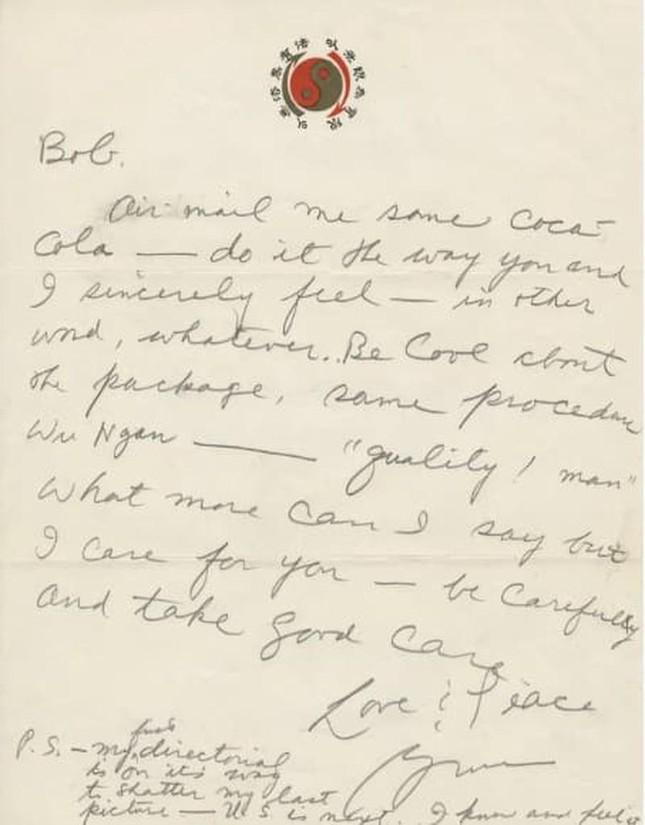 以無限為有限
以無法為有法
Bob.
Air mail me some Coca-
Cola — do it the way you and
I sincerely feel — in other
word, whatever.. Be Cool about
the package, same procedure
Wu Ngan — "quality! man"
what more can I say but
I care for you — be Carefully
and take good care
Love & Peace
Bruce
P.S. — my first directorial
is on it's way
to shatter my last
picture — U.S. is next. I know and feel it